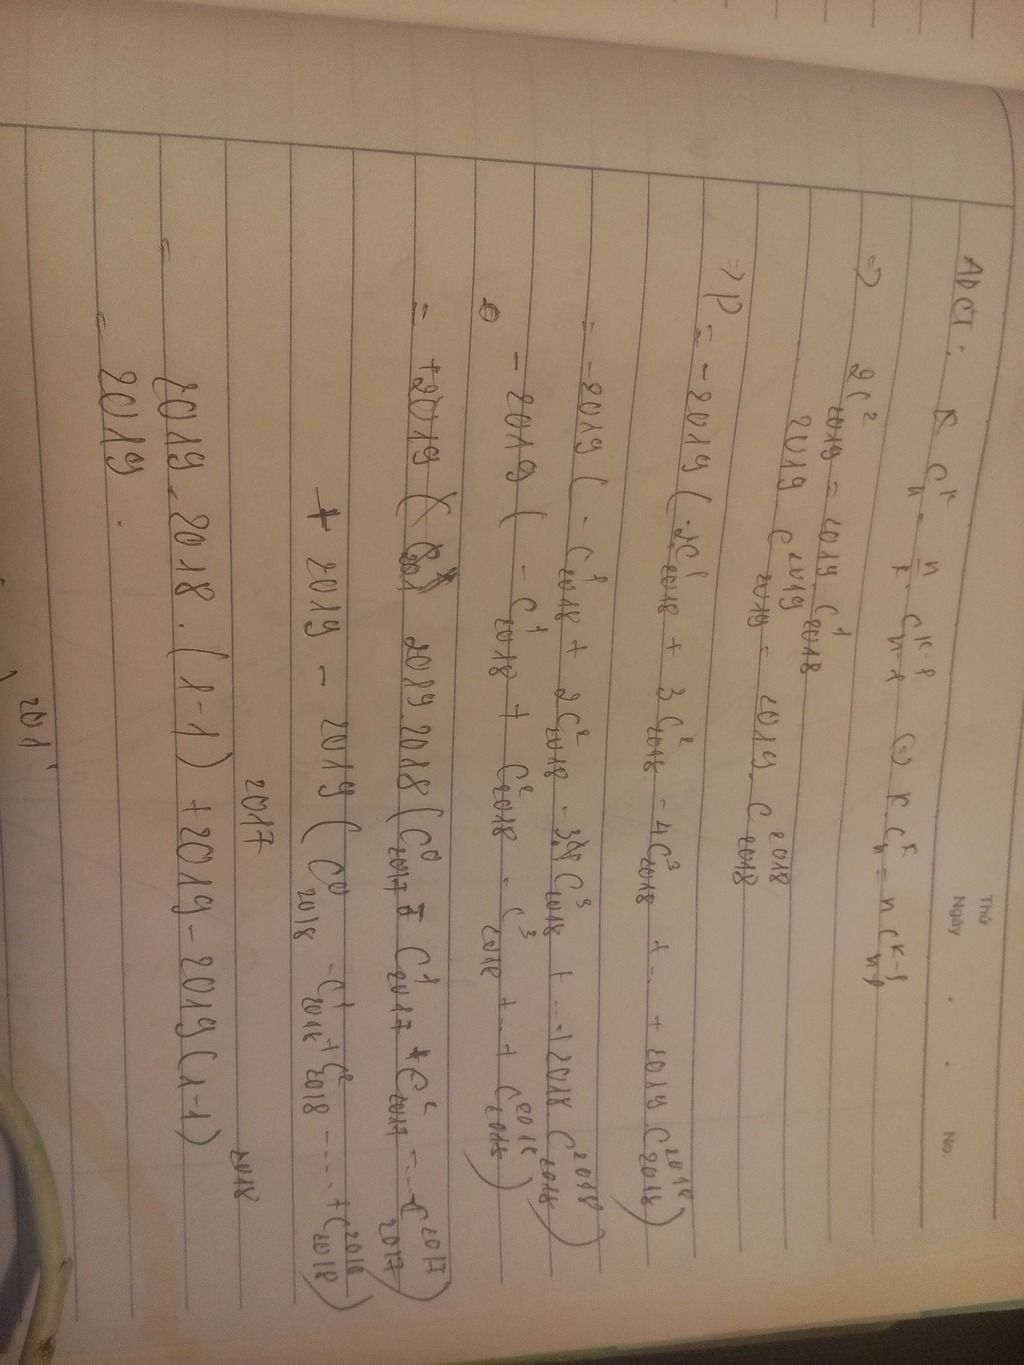 Thứ
Ngày . . No.
ADCT: k C_n^k = n/k . C_{n-1}^{k-1} ⇔ k C_n^k = n C_{n-1}^{k-1}
=> 2C^2_{2019} = 2019 C^1_{2018}
2019 C^{2019}_{2019} = 2019. C^{2018}_{2018}
=> P = -2019 ( -2C^1_{2018} + 3C^2_{2018} - 4C^3_{2018} + ... + 2019 C^{2018}_{2018} )
= -2019 ( - C^1_{2018} + 2C^2_{2018} - 3C^3_{2018} + ... + 2018 C^{2018}_{2018} )
- 2019 ( - C^1_{2018} + C^2_{2018} - C^3_{2018} + ... + C^{2018}_{2018} )
= +2019.2018 ( C^0_{2017} - C^1_{2017} + C^2_{2017} - ... C^{2017}_{2017} )
+ 2019 - 2019 ( C^0_{2018} - C^1_{2018} + C^2_{2018} ..... + C^{2018}_{2018} )
= 2019.2018.(1-1)^{2017} + 2019 - 2019(1-1)^{2018}
= 2019.